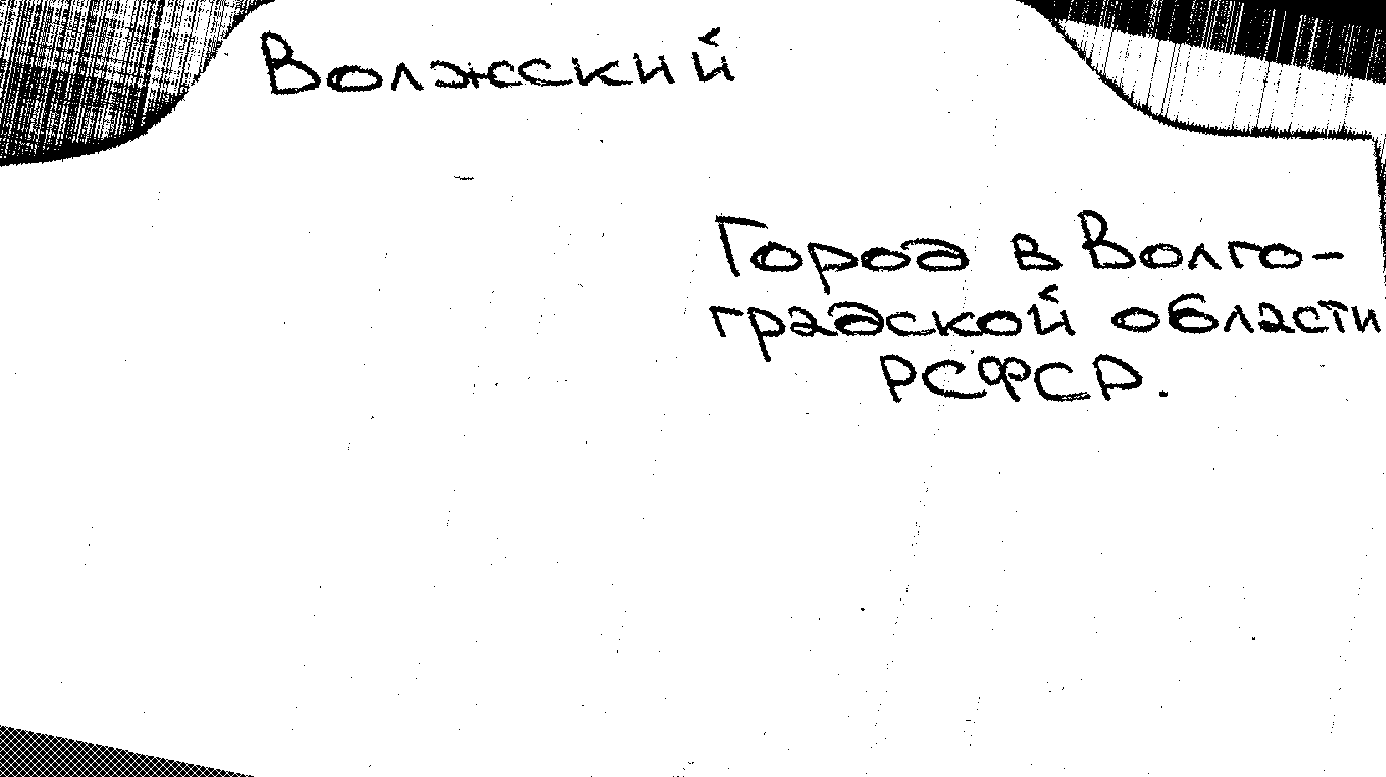 Волжский
Город в Волго-
градской области
РСФСР.